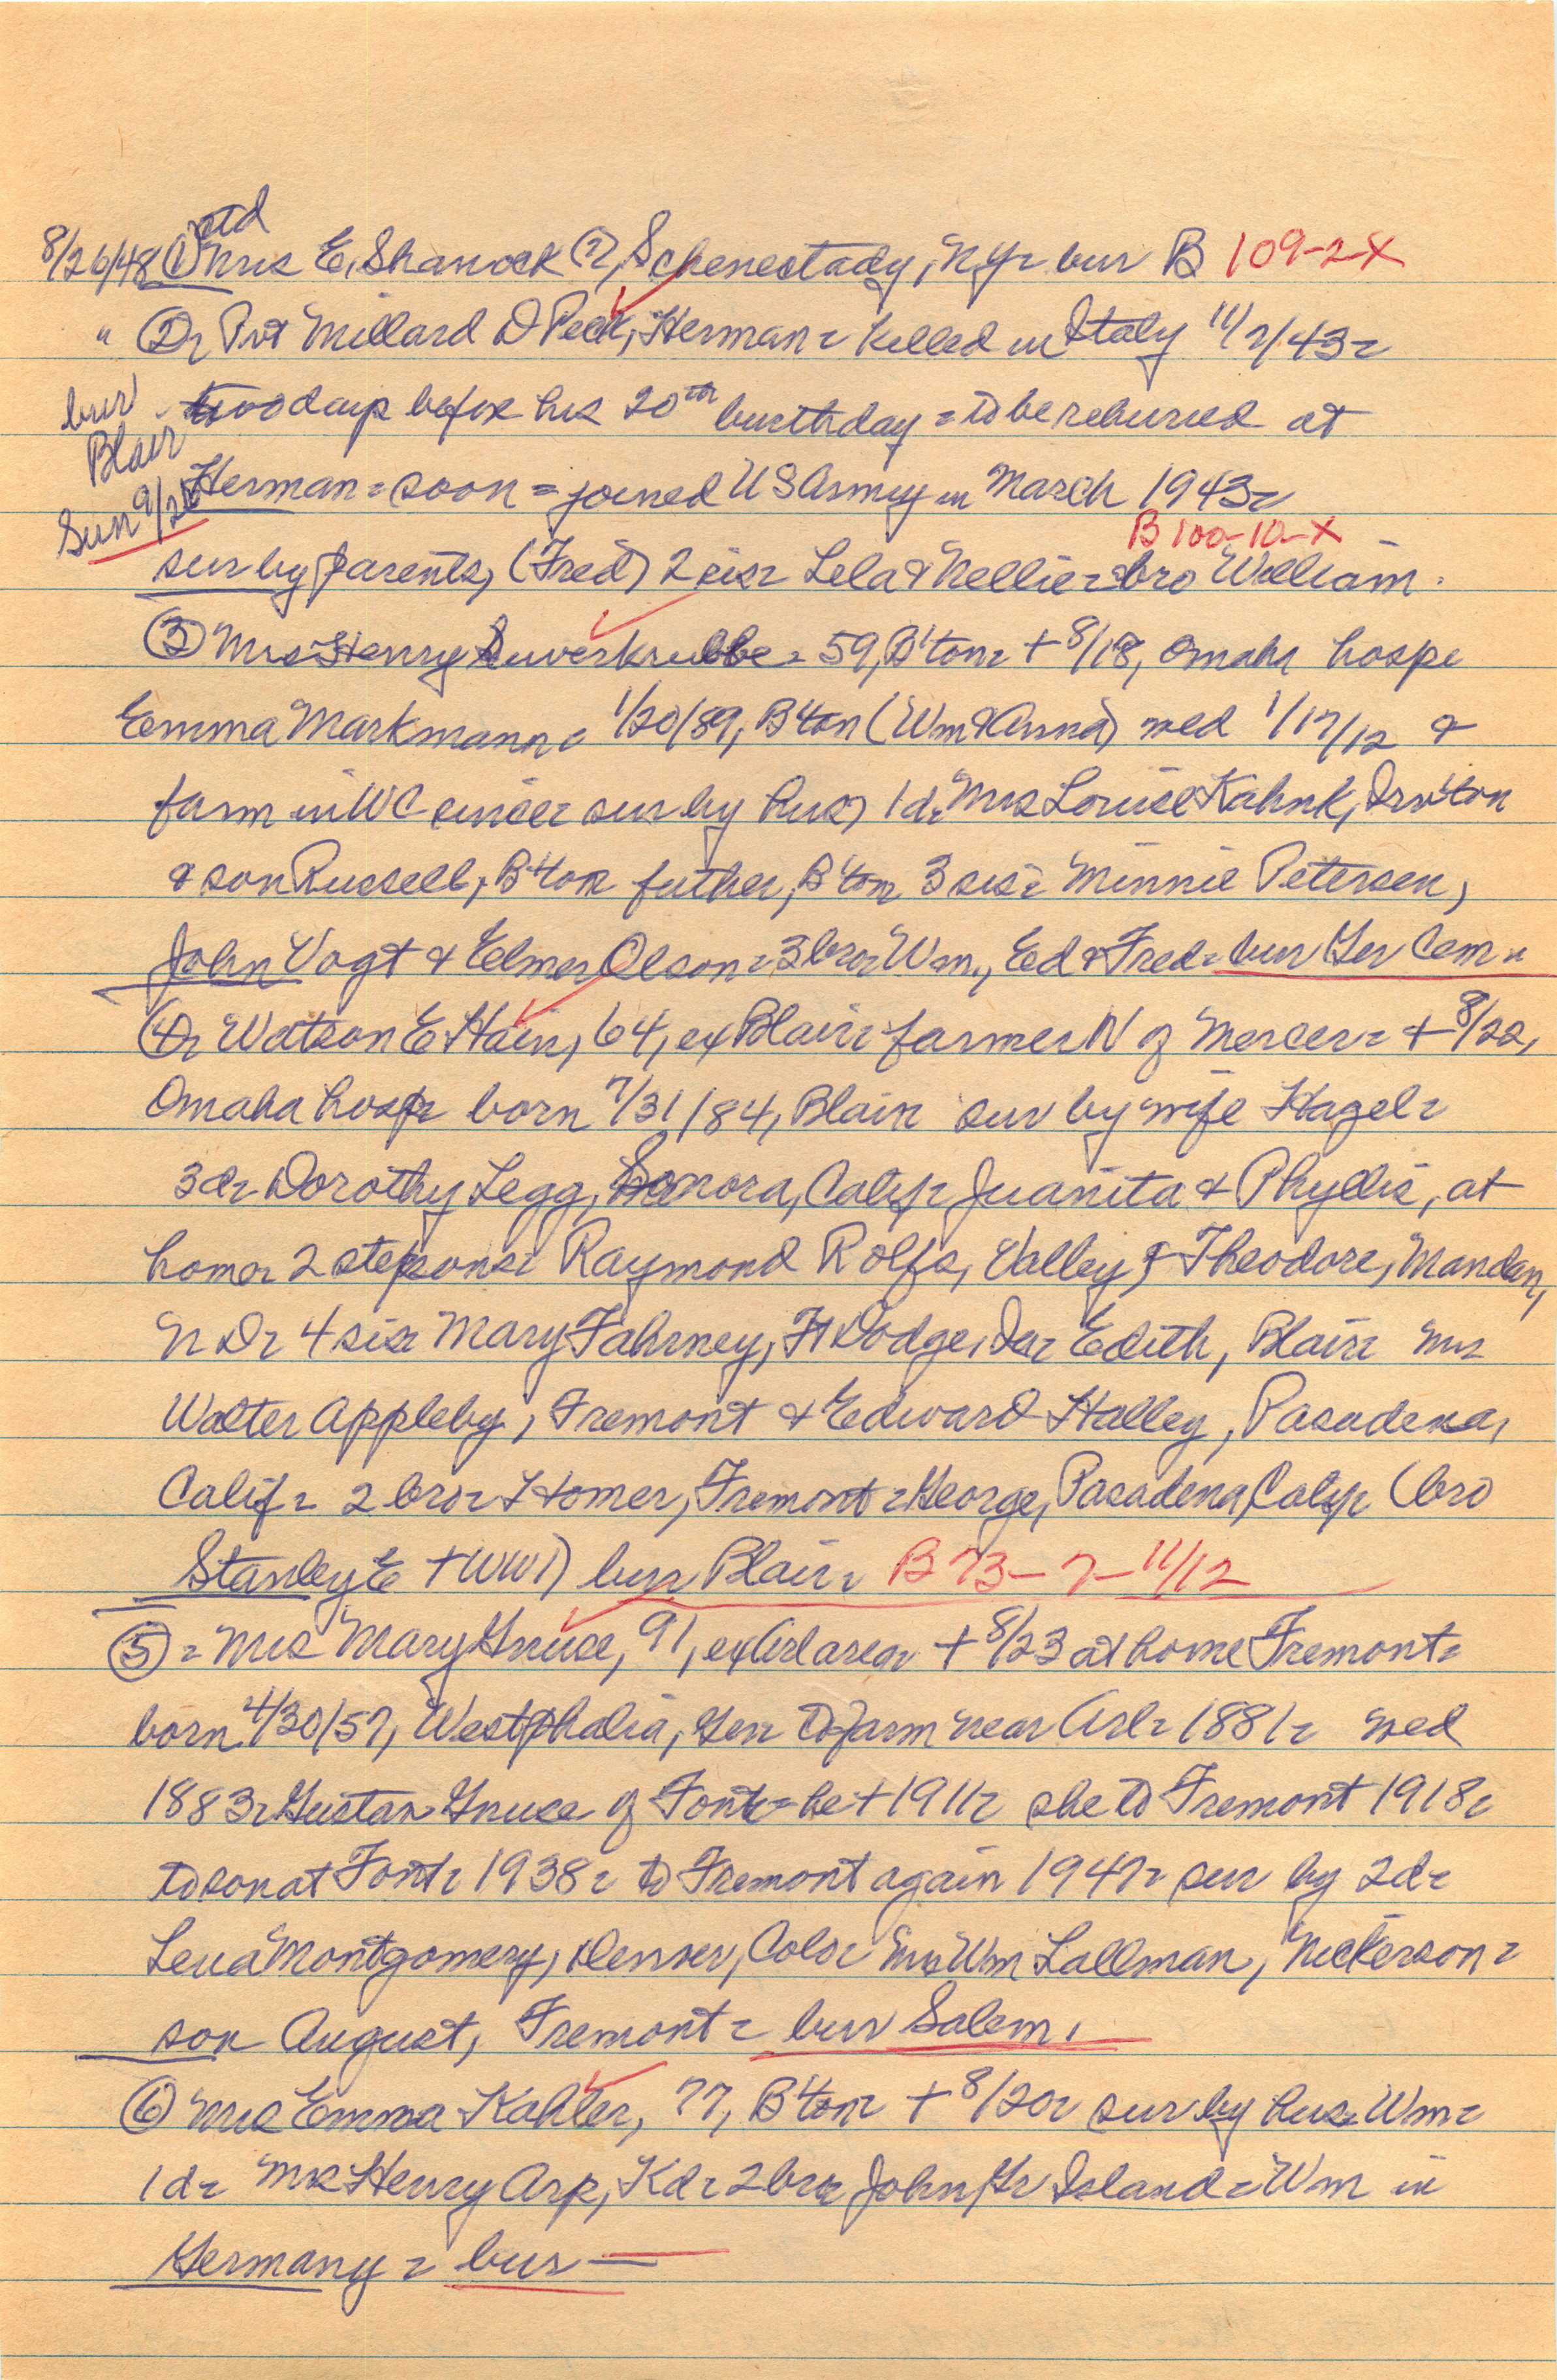 8/26/48 ① Mrs E. Shanock (?), Schenectady, NY = bur B 109-2-X
" ② = Pvt Millard D Peck, Herman = killed in Italy 11/2/43 =
bur Blair Sun 9/26
two days before his 20th birthday = to be reburied at
Herman = soon = joined US Army in March 1943 =
B 100-10-X
sur by parents, (Fred) 2 sis = Lela & Nellie = bro William.
③ Mrs Henry Suverkrubbe = 59, B'ton = + 8/18, Omaha hosp =
Emma Markmann = 1/20/89, B'ton (Wm & Anna) wed 1/17/12 &
farm in WC since = sur by hus, 1 d = Mrs Louise Kahnk, Irv'ton
& son Russell, B'ton father, B'ton 3 sis = Minnie Petersen,
John Vogt & Elmer Olson = 3 bro = Wm, Ed & Fred = bur Ger Cem =
④ = Watson E Hain, 64, ex Blair = farmer N of Mercer = + 8/22,
Omaha hosp = born 7/31/84, Blair sur by wife Hazel =
3 d = Dorothy Legg, Sonora, Calif = Juanita & Phyllis, at
home = 2 stepsons = Raymond Rolfs, Valley & Theodore, Mandan,
N D = 4 sis = Mary Fahrney, Ft Dodge, Ia = Edith, Blair = Mrs
Walter Appleby, Fremont & Edward Halley, Pasadena,
Calif = 2 bro = Homer, Fremont = George, Pasadena, Calif = (bro
Stanley E + WW1) bur Blair = B 73-7-11/12
⑤ = Mrs Mary Gruse, 91, ex Arl area = + 8/23 at home Fremont =
born 4/30/57, Westphalia, Ger = to farm near Arl = 1881 = wed
1883 = Gustav Gruse of Font = he + 1911 = she to Fremont 1918 =
to son at Font = 1938 = to Fremont again 1947 = sur by 2 d =
Lena Montgomery, Denver, Colo = Mrs Wm Lallman, Nickerson =
son August, Fremont = bur Salem.
⑥ Mrs Emma Kahler, 77, B'ton = + 8/20 = sur by hus = Wm =
1 d = Mrs Henry Arp, Kd = 2 bro = John, Gr Island = Wm in
Germany = bur —